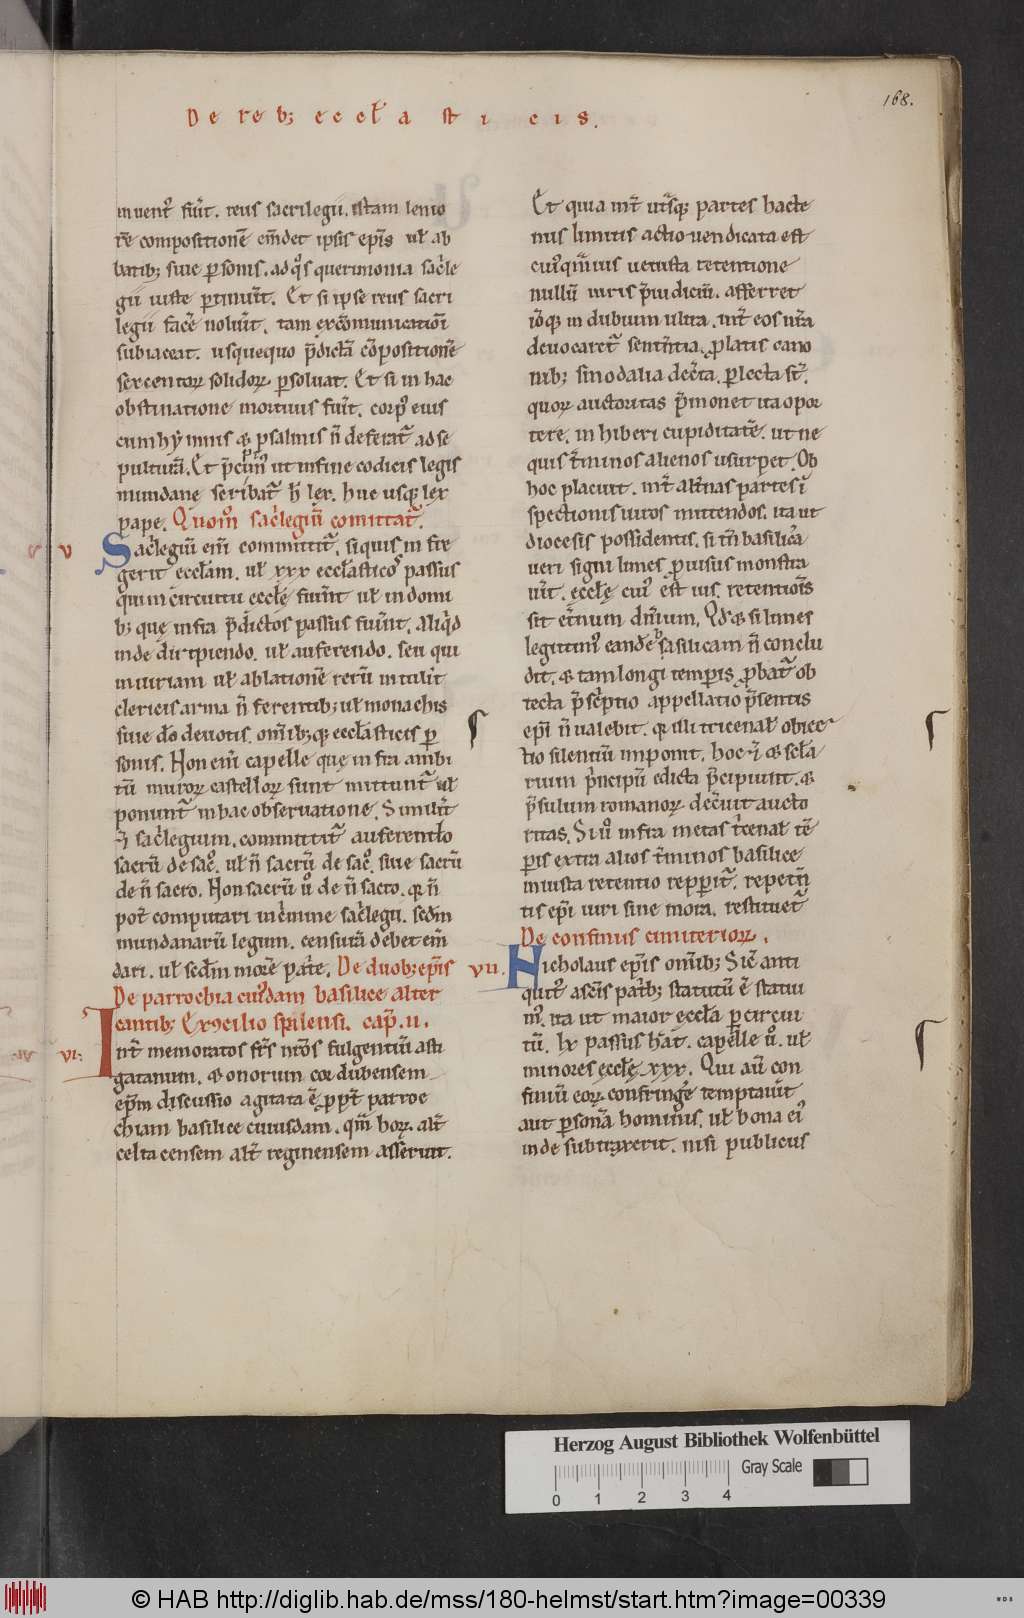 168.
De reb; eccła sticis.
inuent᷒ fuīt. reus sacrilegii. istam lenio
rē compositionē em̄det ipsis ep̄is uł ab
batib; siue ꝑsonis. ad qͦs querimonia sac̓le
gii iuste ꝑtinuīt. Et si ipse reus sacri
legii facē noluīt. tam exc̄omunicatiōi
subiaceat. usquequo p̄dictā cōpositionē
sexcentoꝝ solidoꝝ ꝑsoluat. Et si in hac
obstinatione mortuus fuīt. corpꝰ eius
cum hẏmnis & psalmis n̄ deferat᷑ ad se
pulturā. Et p̄cim᷒ ut in fine codicis legis
mundane scribat᷑ h̄ lex. huc usq; lex
pape. Quom̄ sac̓legiū comittat᷑.
v
Sac̓legiū em̄ committit᷑. si quis in fre
gerit eccłam. uł xxx ecctasticoˢ passus
qui in circuitu eccłę fuīnt uł in domi
b; quę infra p̄dictos passus fuīnt. aliqͥd
inde diripiendo. uł auferendo. seu qui
iniuriam uł ablationē rerū intulīt
clericis arma n̄ ferentib; uł monachis
siue dō deuotis. om̄ib;q; eccłasticis ꝑ
sonis. Non em̄ capelle quę infra ambi
tū muroꝝ castelloꝝ sunt mittunt᷑ uł
ponunt᷑ in hac obseruatione. Similīt
⁊ sac̓legium. committit᷑ auferendo
sacrū de sacͦ. uł n̄ sacrū de sacͦ. siue sacrū
de n̄ sacro. Non sacrū ů de n̄ sacro. q; n̄
pot̄ computari in c̓mine sac̓legii. scd̄m
mundanarū legum. censurā debet em̄
dari. uł scd̄m morē pat̓e. De duob; ep̄is
De parrochia cuiˀdam basilice alter
cantib; Ex ꝯcilio spalensi. cap̄. ii.
vi:
Int̄ memoratos frs̄ nrōs fulgentiū asti
gatanum. & onorum cor dubensem
ep̄m discussio agitata ē ꝓpt̄ parroc
chiam basilice cuiusdam. qm̄ hoꝝ. alt̄
celtacensem alt̄ reginensem asseruit.
Et quia int̄ ut̓sq; partes hacte
nus limitis actio uendicata est
cuiˀ qm̄uis uetusta retentione
nullū iuris p̄iudiciū. afferret
iōq; in dubium ultra. int̄ eos nrā
deuocaret᷑ sententia. ꝓlatis cano
nib; sinodalia dec̓ta. ꝑlecta st̄.
quoꝝ auctoritas p̄monet ita opor
tere. inhiberi cupiditatē. ut ne
quis t̄minos alienos usurpet. Ob
hoc placuit. int̄ alt̄nas partes ī
spectionis uiros mittendos. ita ut
diocesis possidentis. si tn̄ basilica
ueri signi limes ꝓuisus monstra
uīt. eccłę cuiˀ est ius. retentiōis
sit et̄num dn̄ium. Qd & si limes
legitimˀ eandē basilicam n̄ conclu
dit. & tam longi temporis ꝓbat᷑ ob
tecta p̄sc̓ptio appellatio p̄sentis
ep̄i n̄ ualebit. q; illi tricenał obiec
tio silentiū imponit. hoc ⁊ & scła
rium p̓ncipū edicta p̄cipiunt. &
p̄sulum romanoꝝ dec̓uit aucto
ritas. Si ů infra metas t̓cenał tē
ꝑis extra alios t̄minos basilice
iniusta retentio reperit᷑. repetn̄
tis ep̄i iuri sine mora. restituet᷑
De confiniis cimiterioꝝ.
vii.
Nicholaus ep̄is om̄ib; Sic̄ anti
quit᷒ asc̄is pat̓b; statutū ē statui
mˀ. ita ut maior eccła ꝑ circui
tū. lx passus hāt. capelle ů. uł
minores eccłę xxx. Qui aū con
finiū eoꝝ confringe᷒ temptauīt
aut ꝑsonā hominis. uł bona eiˀ
inde subtraxerit. nisi publicus
Herzog August Bibliothek Wolfenbüttel
Gray Scale
0 1 2 3 4
© HAB http://diglib.hab.de/mss/180-helmst/start.htm?image=00339